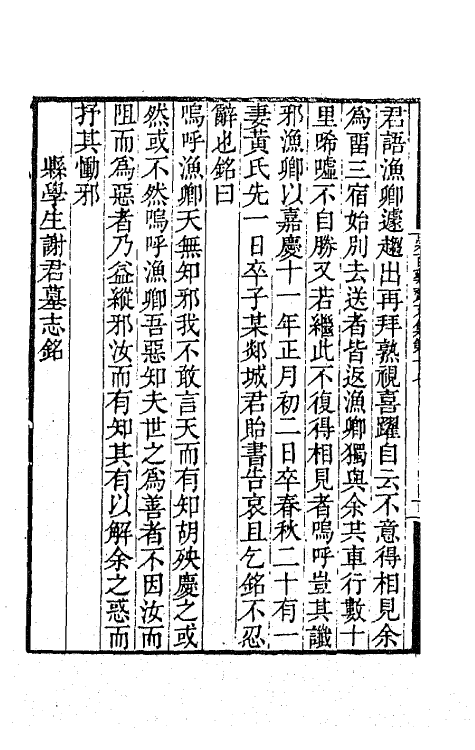 君語漁卿遽趨出再拜熟視喜躍自云不意得相見余
為留三宿始別去送者皆返漁卿獨與余共車行數十
里唏噓不自勝又若繼此不復得相見者嗚呼豈其讖
邪漁卿以嘉慶十一年正月初二日卒春秋二十有一
妻黃氏先一日卒子某郯城君貽書告哀且乞銘不忍
辭也銘曰
嗚呼漁卿天無知邪我不敢言天而有知胡殃慶之或
然或不然嗚呼漁卿吾惡知夫世之為善者不因汝而
阻而為惡者乃益縱邪汝而有知其有以解余之惑而
抒其慟邪
縣學生謝君墓志銘